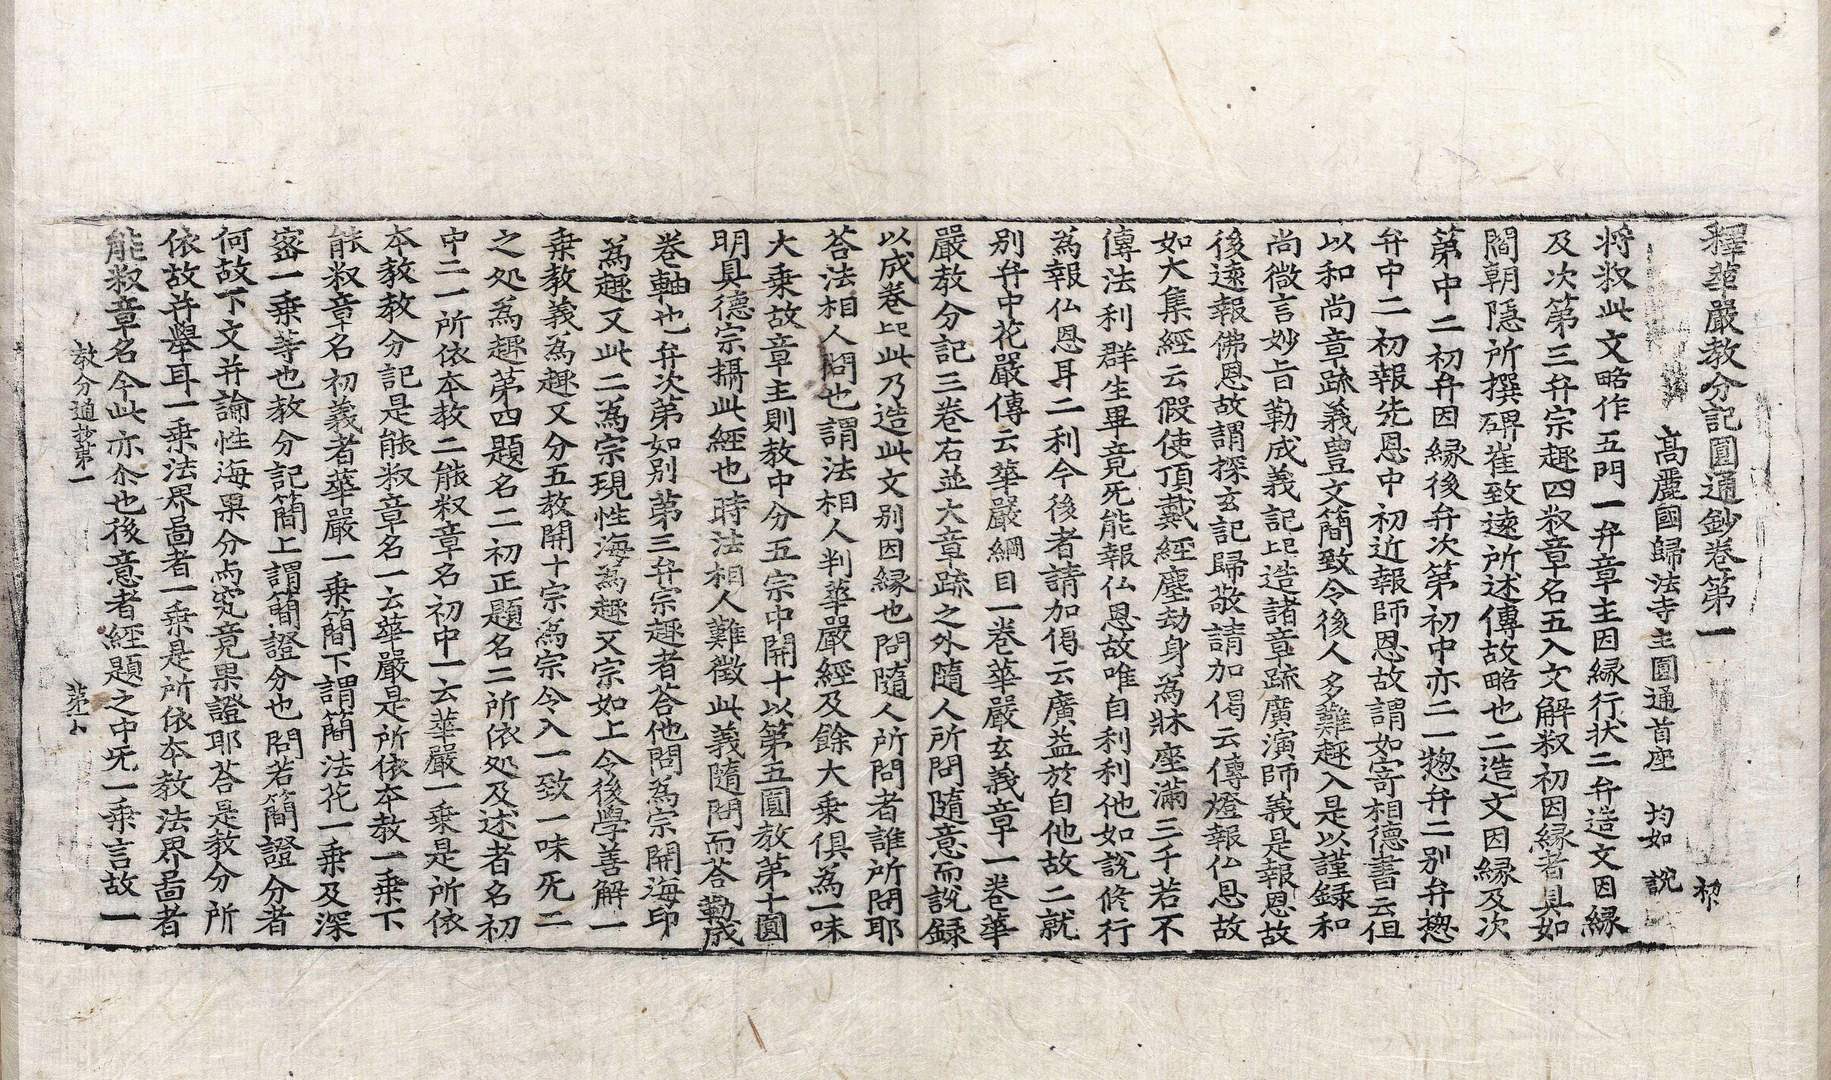 釋華嚴教分記圓通鈔卷第一
高麗國歸法寺主圓通首座 均如 說
將叙此文略作五門一弁章主因緣行狀二弁造文因縁
及次第三弁宗趣四叙章名五入文解叙初因縁者具如
閻朝隱所撰碑崔致遠所述傳故略也二造文因縁及次
第中二初弁因縁後弁次第初中亦二一揔弁二別弁揔
弁中二初報先恩中初近報師恩故謂如寄相德書云但
以和尚章䟽義豊文簡致令後人多難趣入是以謹録和
尚微言妙旨勒成義記此造諸章䟽廣演師義是報恩故
後遠報佛恩故謂探玄記歸敬請加偈云傳燈報仏恩故
如大集經云假使頂戴經塵劫身為牀座滿三千若不
傳法利群生畢竟无能報仏恩故唯自利利他如說修行
為報仏恩耳二利今後者請加偈云廣益於自他故二就
別弁中花嚴傳云華嚴綱目一卷華嚴玄義章一卷華
嚴教分記三卷右並大章䟽之外隨人所問隨意而說録
以成卷此乃造此文别因縁也問隨人所問者誰所問耶
荅法相人問也謂法相人判華嚴經及餘大乘俱為一味
大乘故章主則教中分五宗中開十以第五圓教第十圓
明具德宗攝此經也時法相人難徵此義隨問而荅勒成
卷軸也弁次第如别第三弁宗趣者荅他問為宗開海印
為趣又此二為宗現性海為趣又宗如上令後學善解一
乗教義為趣又分五教開十宗為宗令入一致一味无二
之処為趣第四題名二初正題名二所依処及述者名初
中二一所依本教二能叙章名初中一云華嚴一乗是所依
本教教分記是能叙章名一云華嚴是所依本教一乗下
能叙章名初義者華嚴一乗簡下謂簡法花一乗及深
宻一乗等也教分記簡上謂簡證分也問若簡證分者
何故下文并論性海果分與究竟果證耶荅是教分所
依故并舉耳一乗法界啚者一乗是所依本教法界啚者
能叙章名今此亦尒也後意者經題之中无一乗言故一
教分通抄第一